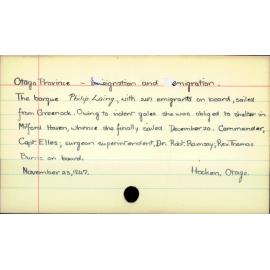 Otago Province - Immigration and emigration.
The barque Philip Laing, with 247 emigrants on board, sailed
from Greenock. Owing to violent gales she was obliged to shelter in
Milford Haven, whence she finally sailed December 20. Commander,
Capt. Elles; surgeon superintendent, Dr. Robt. Ramsay; Rev. Thomas
Burns on board.
November 23, 1847. Hocken, Otago.